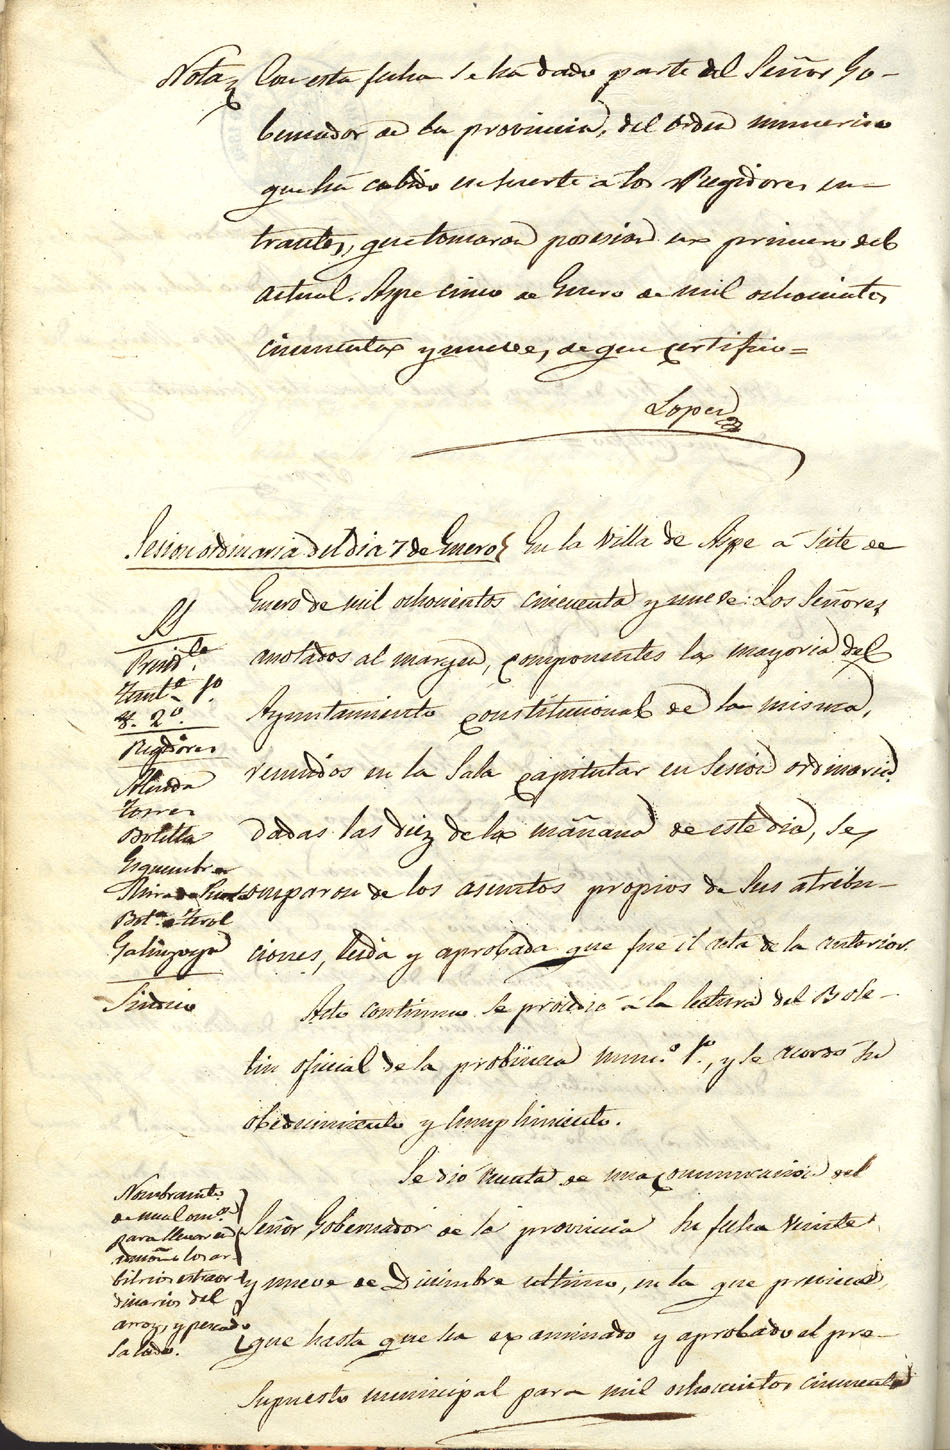 Nota Con esta fecha se ha dado parte al Señor Go-
bernador de la provincia, del orden numerico
que há cabido en suerte a los Regidores en-
trantes, que tomaron posesion en primero del
actual. Aspe cinco de Enero de mil ochocientos
cincuenta y nueve, de que certifico=
Lopez
Sesion ordinaria del dia 7 de Enero En la Villa de Aspe á siete de
Enero de mil ochocientos cincuenta y nueve: Los Señores
anotados al margen, componentes la mayoria del
Ayuntamiento constitucional de la misma,
reunidos en la Sala capitular en Sesion ordinaria
dadas las diez de la mañana de este dia, se
ocuparon de los asuntos propios de sus atribu-
ciones, leida y aprobada que fue el acta de la anterior.
SS
Presid.te
Tente. 1º
T. 2º.
Regidores
Almoda
Torres
Botella
Esquembre
Mira de
Bot.a Terol
Galinzoga
Sindico
Acto continuo se procedió á la lectura del Bole-
tin oficial de la probincia num.º 1º, y se acordó su
obedecimiento y cumplimiento.
Se dió cuenta de una comunicacion del
Señor Gobernador de la provincia su fecha veinte
y nueve de Diciembre ultimo, en la que previene
que hasta que ha examinado y aprobado el pre-
supuesto municipal para mil ochocientos cincuenta
Nombramto.
de una Comon.
para llevar en
admon. los ar-
bitrios estraor-
dinarios del
arroz, y pescado
salado.